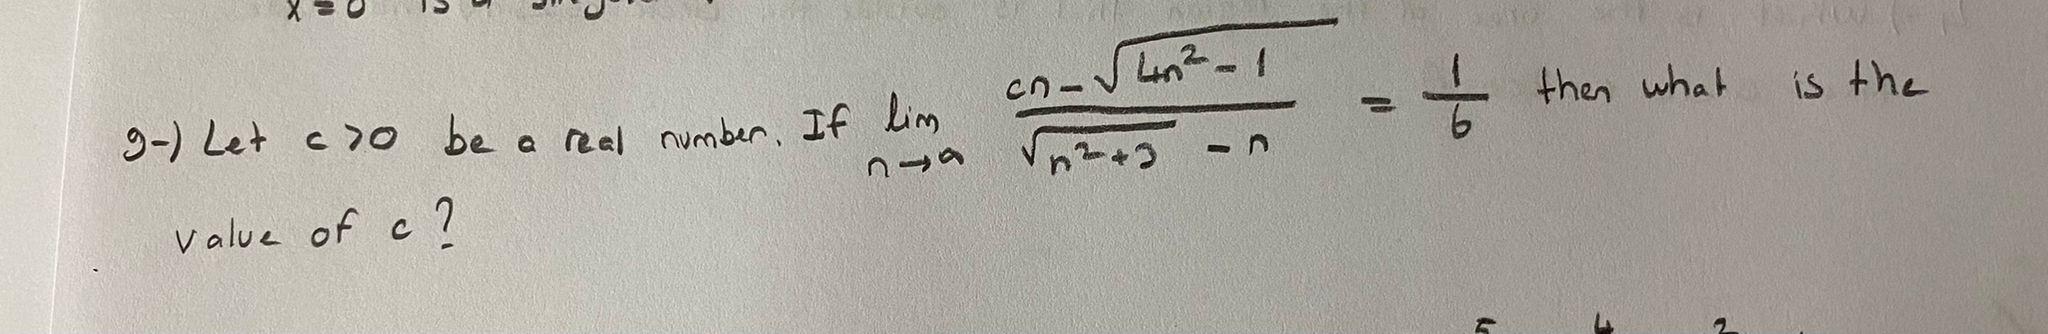 x=0 is a
9-) Let c>0 be a real number. If lim n→a (cn-√(4n²-1))/(√(n²+3) -n) = 1/6 then what is the
value of c?
5 4 2